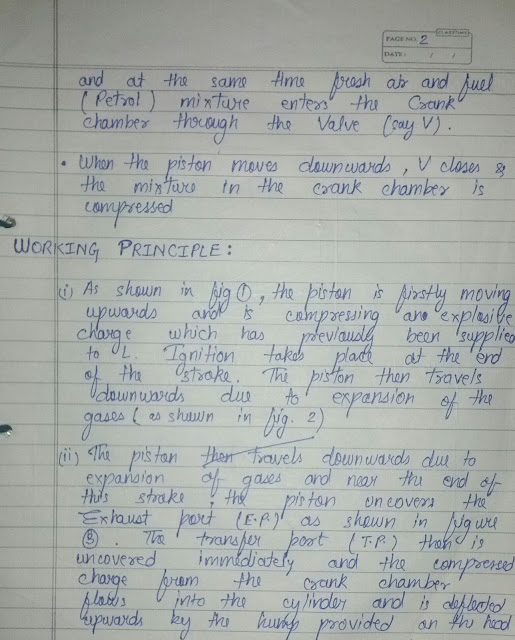 CLASSTIME
PAGE NO. 2
DATE: / /
and at the same time fresh air and fuel
(Petrol) mixture enters the Crank
chamber through the Valve (say V).
• When the piston moves downwards, V closes &
the mixture in the crank chamber is
compressed
WORKING PRINCIPLE:
(i) As shown in fig ①, the piston is firstly moving
upwards and is compressing and explosive
charge which has previously been supplied
to L. Ignition takes place at the end
of the stroke. The piston then travels
downwards due to expansion of the
gases (as shown in fig. 2)
(ii) The piston then travels downwards due to
expansion of gases and near the end of
this stroke, the piston uncovers the
Exhaust port (E.P.) as shown in figure
③. The transfer port (T.P.) then is
uncovered immediately and the compressed
charge from the crank chamber
flows into the cylinder and is deflected
upwards by the hump provided on the head